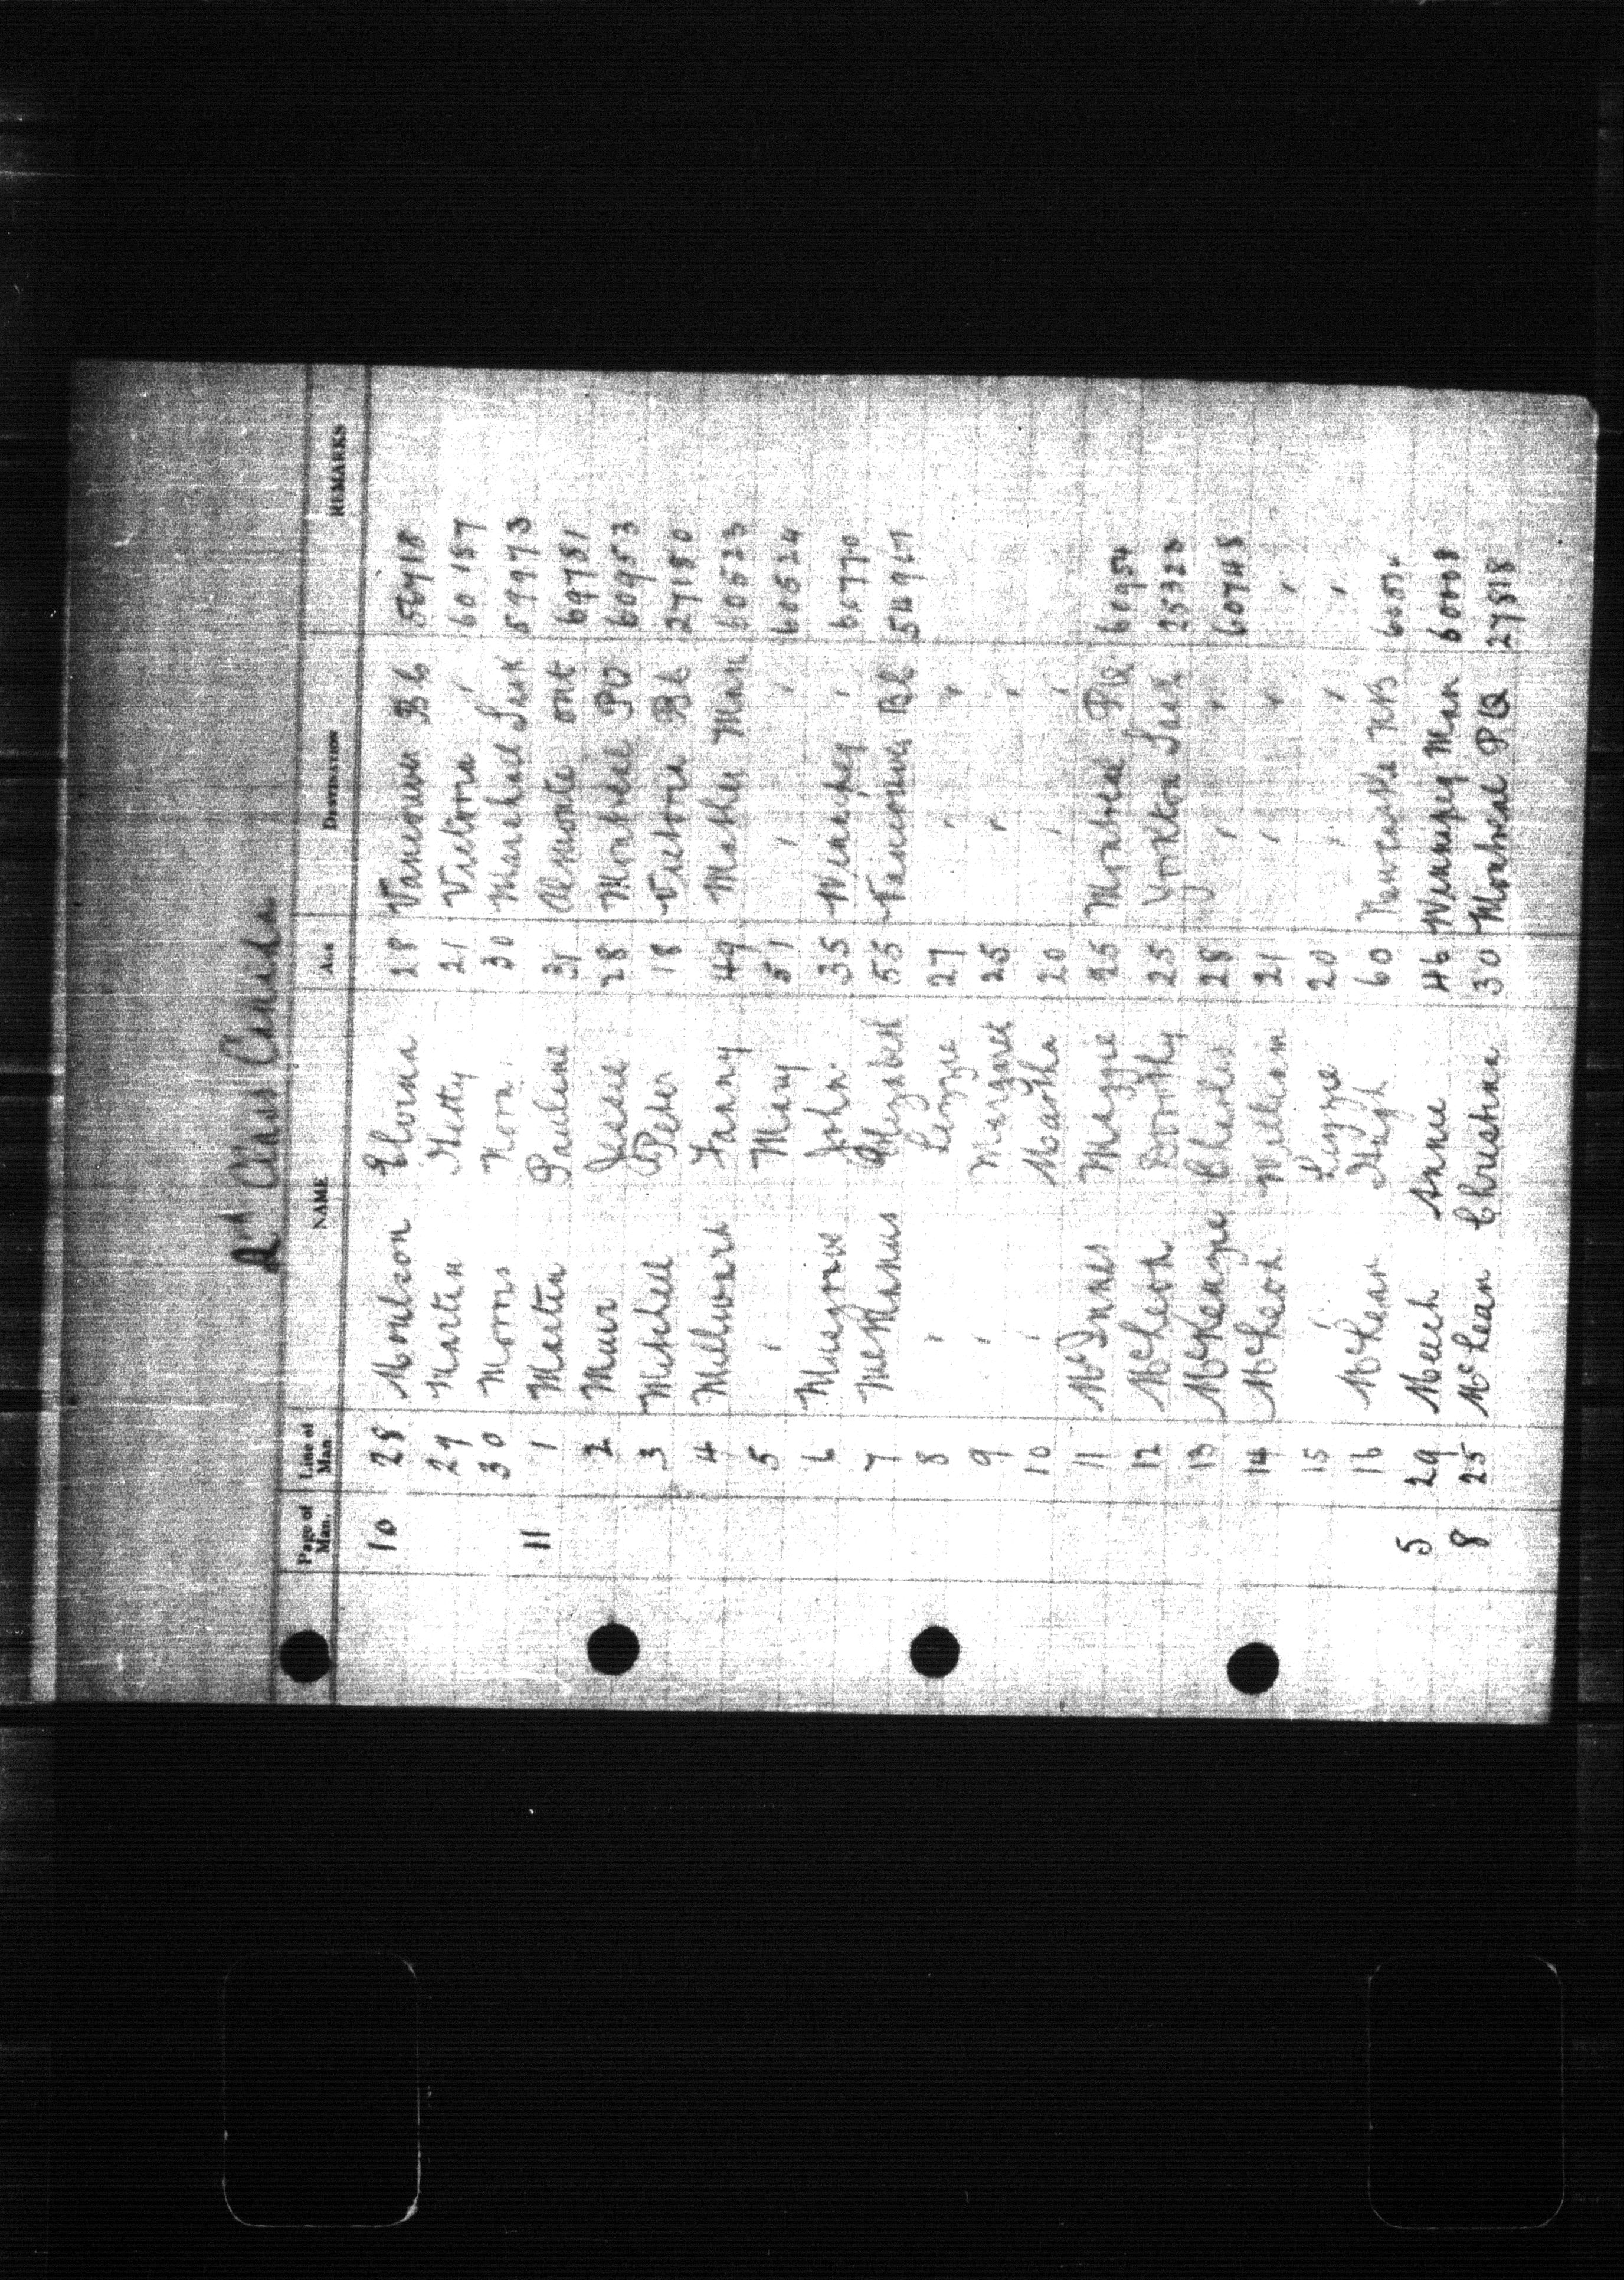 2nd Class Canada
Page of Man. Line of Man NAME AGE DESTINATION REMARKS
10 28 Moulson Elvina 28 Vancouver BC
29 Martin Hetty 21 Victoria " 60187
30 Morris Nora 30 Marshall Sask 59973
11 1 Martin Pauline 31 Almonte Ont 69781
2 Muir Jessie 28 Montreal PQ 60953
3 Mitchell Peter 18 Victoria BC 27180
4 Millward Fanny 49 Mather Man 60523
5 " Mary 51 " " 60524
6 John 35 Winnipeg " 60770
7 McManus Elizabeth 55 Vancouver BC 54967
8 " Lizzie 27 " "
9 " Margaret 25 " "
10 " Martha 20 " "
11 McInnes Maggie 25 Montreal PQ 60954
12 McLeod Dorothy 25 Yorkton Sask 25323
13 McKenzie Charles 28 " " 60748
14 McLeod William 21 " " "
15 " Lizzie 20 " " "
16 McLean Hugh 60 Newcastle NB
5 29 Meech Annie 46 Winnipeg Man 60008
8 25 McLean Christina 30 Montreal PQ 27818